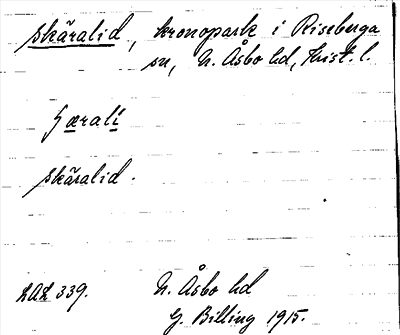 Skäralid, kronopark i Riseberga
sn, N. Åsbo hd, Krist. l.
Skäralid.
LAL 339.
N. Åsbo hd
G. Billing 1915.